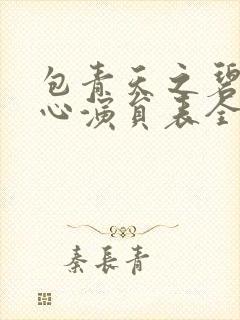 包青天之碧
心演員表全
秦長青